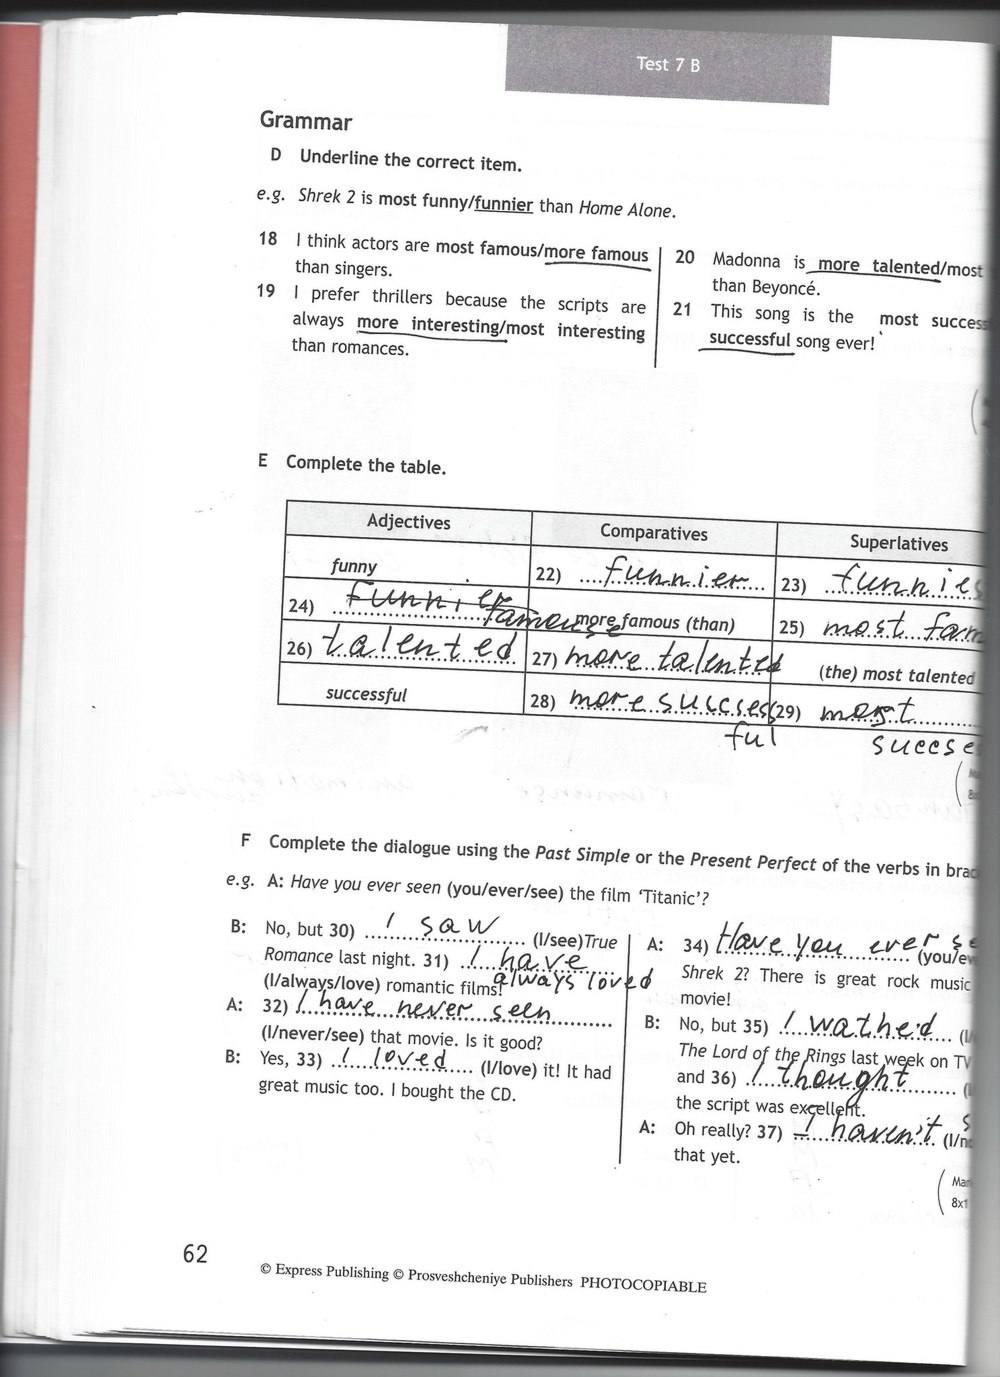 Test 7 B
Grammar
D Underline the correct item.
e.g. Shrek 2 is most funny/funnier than Home Alone.
18 I think actors are most famous/more famous
than singers.
19 I prefer thrillers because the scripts are
always more interesting/most interesting
than romances.
20 Madonna is more talented/most
than Beyoncé.
21 This song is the most success
successful song ever!
E Complete the table.
Adjectives Comparatives Superlatives
funny 22) funnier 23) funnies
24) funnier famouse more famous (than) 25) most fam
26) talented 27) more talented (the) most talented
successful 28) more succses 29) most
ful succse
F Complete the dialogue using the Past Simple or the Present Perfect of the verbs in brac
e.g. A: Have you ever seen (you/ever/see) the film ‘Titanic’?
B: No, but 30) I saw (I/see)True
Romance last night. 31) I have
(I/always/love) romantic films! always loved
A: 32) I have never seen
(I/never/see) that movie. Is it good?
B: Yes, 33) I loved (I/love) it! It had
great music too. I bought the CD.
A: 34) Have you ever se
(you/ev
Shrek 2? There is great rock music
movie!
B: No, but 35) I wathed (I/
The Lord of the Rings last week on TV
and 36) I thought (I
the script was excellent.
A: Oh really? 37) I haven't s (I/ne
that yet.
Mar
8x1
62
© Express Publishing © Prosveshcheniye Publishers PHOTOCOPIABLE